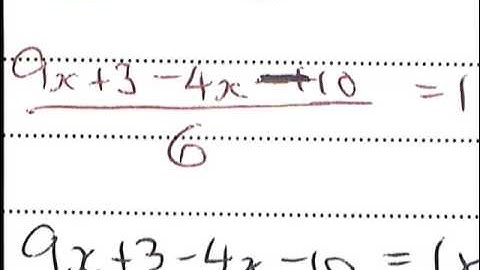 9x+3-4x-10 = 1
6
9x+3-4x-10 = 1x